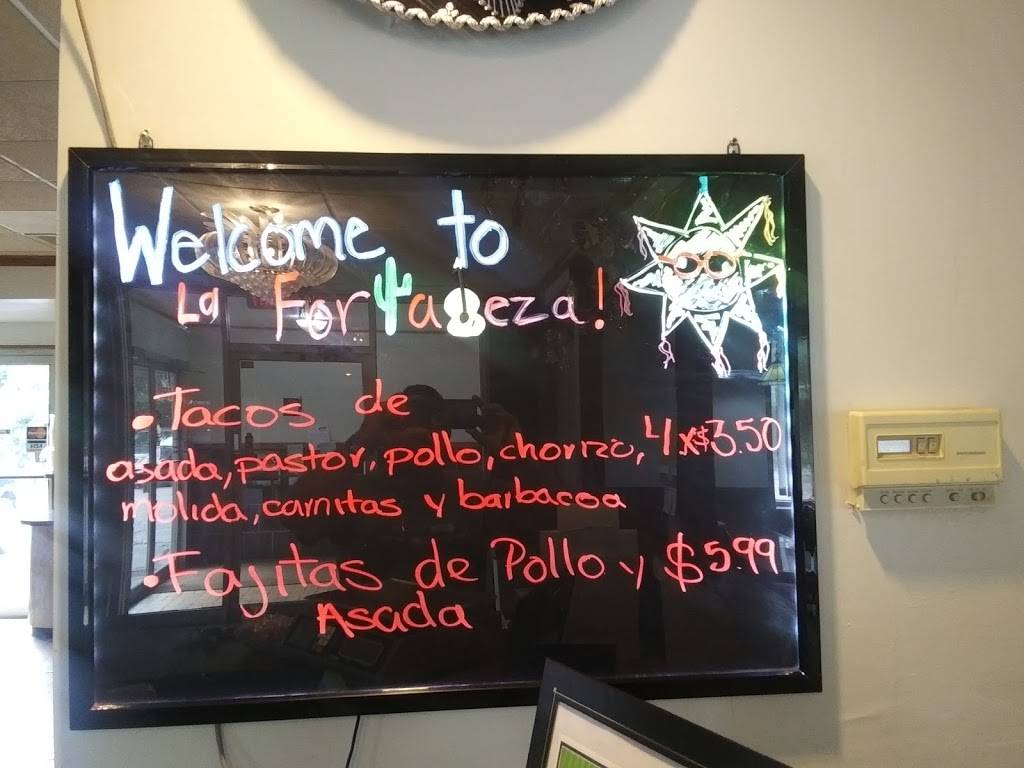 Welcome to
La Fortaleza!
• Tacos de
asada, pastor, pollo, chorizo, 4 x $3.50
molida, carnitas y barbacoa
• Fajitas de Pollo y $5.99
Asada